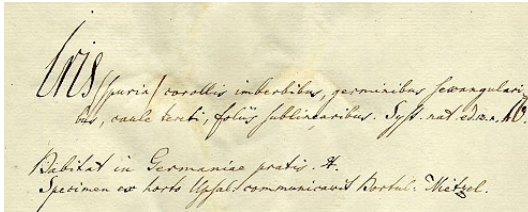 Iris (spuria) corollis imberbibus, germinibus sexangulari
bus, caule tereti, foliis sublinearibus. Syst. nat. ed. 12. n.
Habitat in Germaniae pratis. ♃.
Specimen ex horto Upsal: communicavit Hortul: Nietzel.